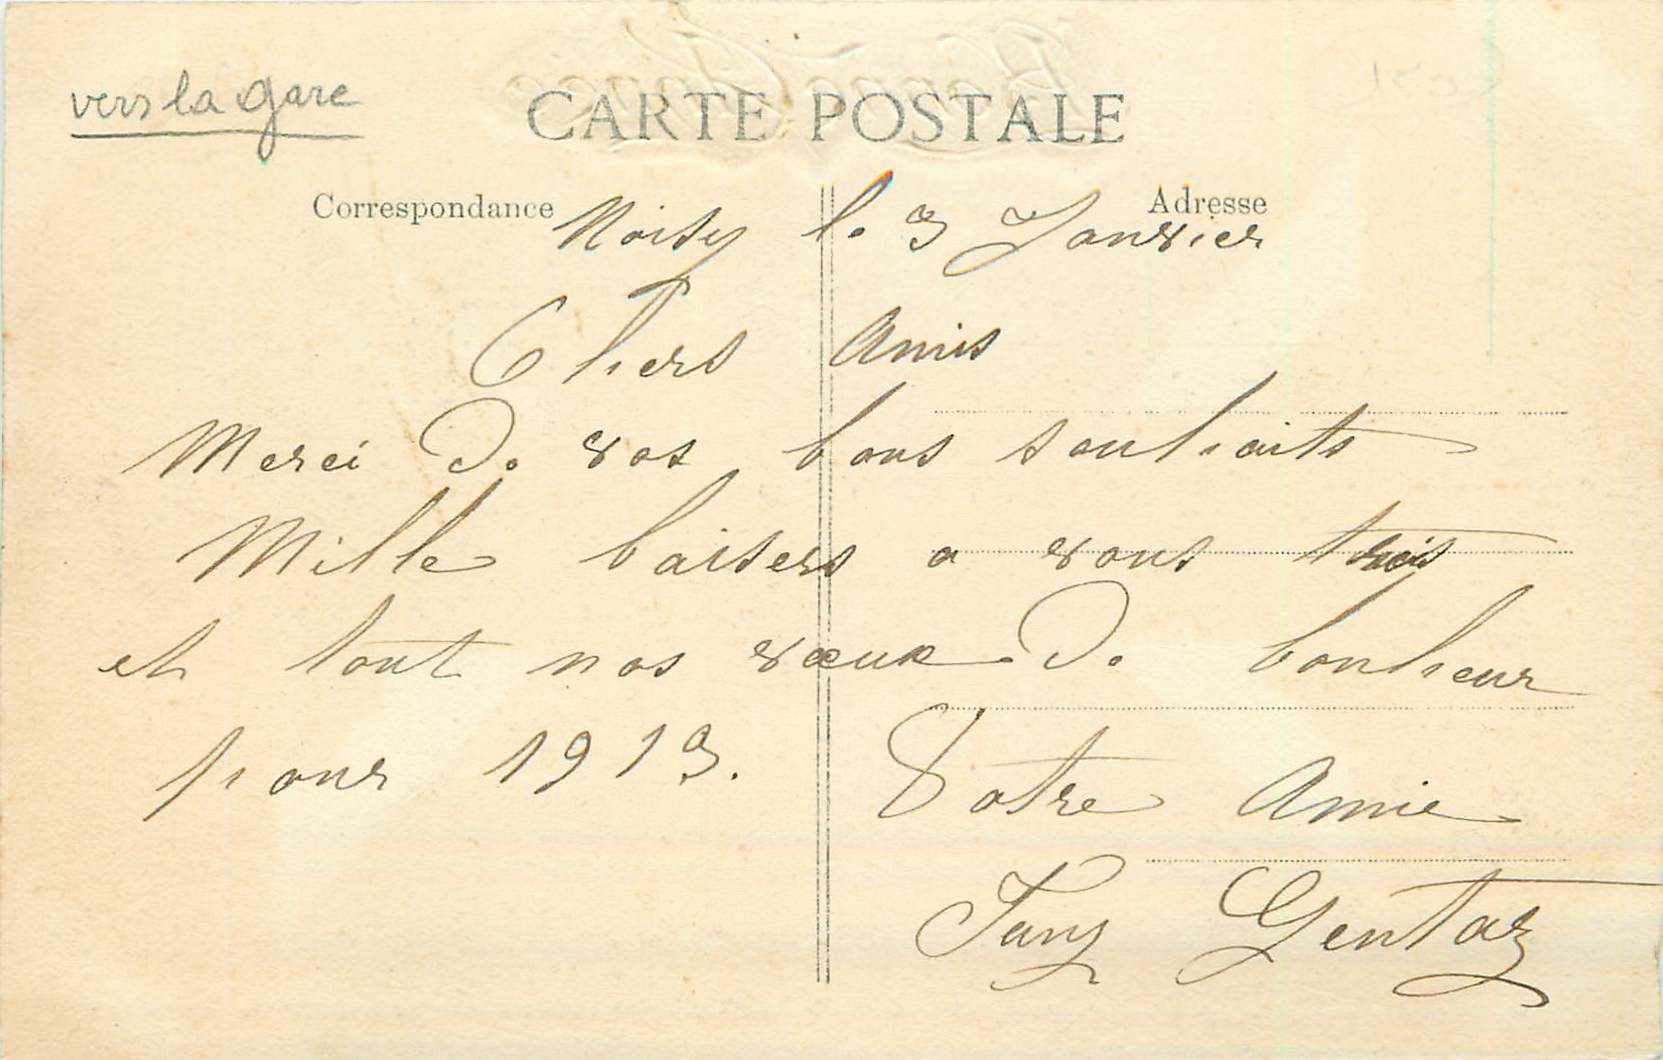 Bonne Année
vers la gare
CARTE POSTALE
Correspondance
Adresse
Noisy le 3 Janvier
Chers Amis
Merci de vos bons souhaits
Mille baisers a vous trois
et tout nos vœux de bonheur
pour 1913.
Votre Amie
Gentaz